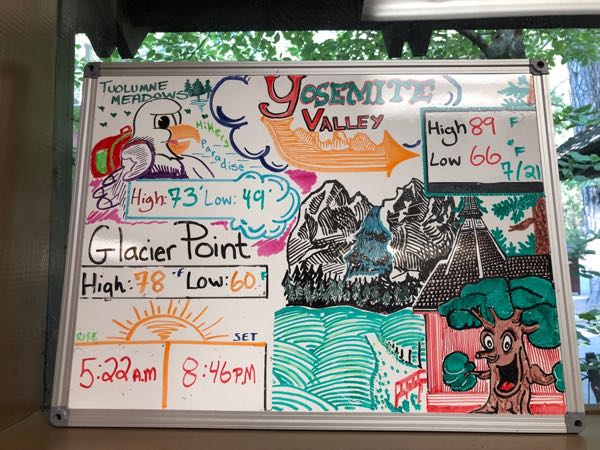 TUOLUMNE
MEADOWS
Hiker's
Paradise
High: 73° Low: 49°
YOSEMITE
VALLEY
High 89 °F
Low 66 °F
7/21
Glacier Point
High: 78 °F Low: 60 °F
RISE SET
5:22 A.M 8:46 PM